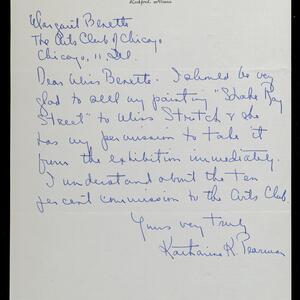 Rockford, Illinois
Margaret Benette
The Arts Club of Chicago
Chicago, 11, Ill.
Dear Miss Benette. I should be very
glad to sell my painting "Shake Rag
Street" to Miss Stretch & she
has my permission to take it
from the exhibition immediately.
I understand about the ten
per cent commission to the Arts Club.
Yours very truly
Katharine K. Pearman